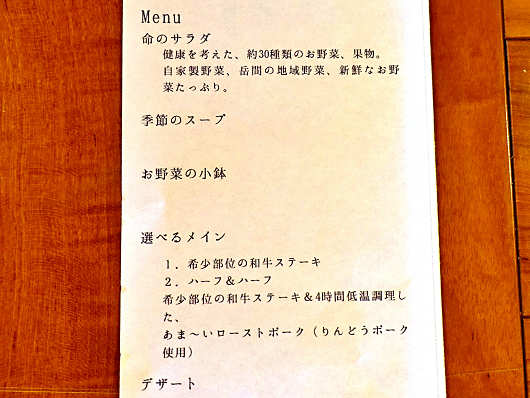 Menu
命のサラダ
健康を考えた、約30種類のお野菜、果物。
自家製野菜、岳間の地域野菜、新鮮なお野
菜たっぷり。
季節のスープ
お野菜の小鉢
選べるメイン
１．希少部位の和牛ステーキ
２．ハーフ＆ハーフ
希少部位の和牛ステーキ＆4時間低温調理し
た、
あま～いローストポーク（りんどうポーク
使用）
デザート